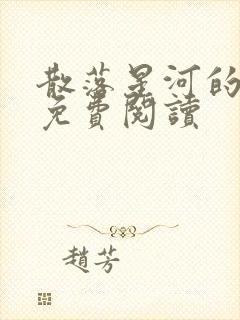 散落星河的
免費閱讀
趙芳